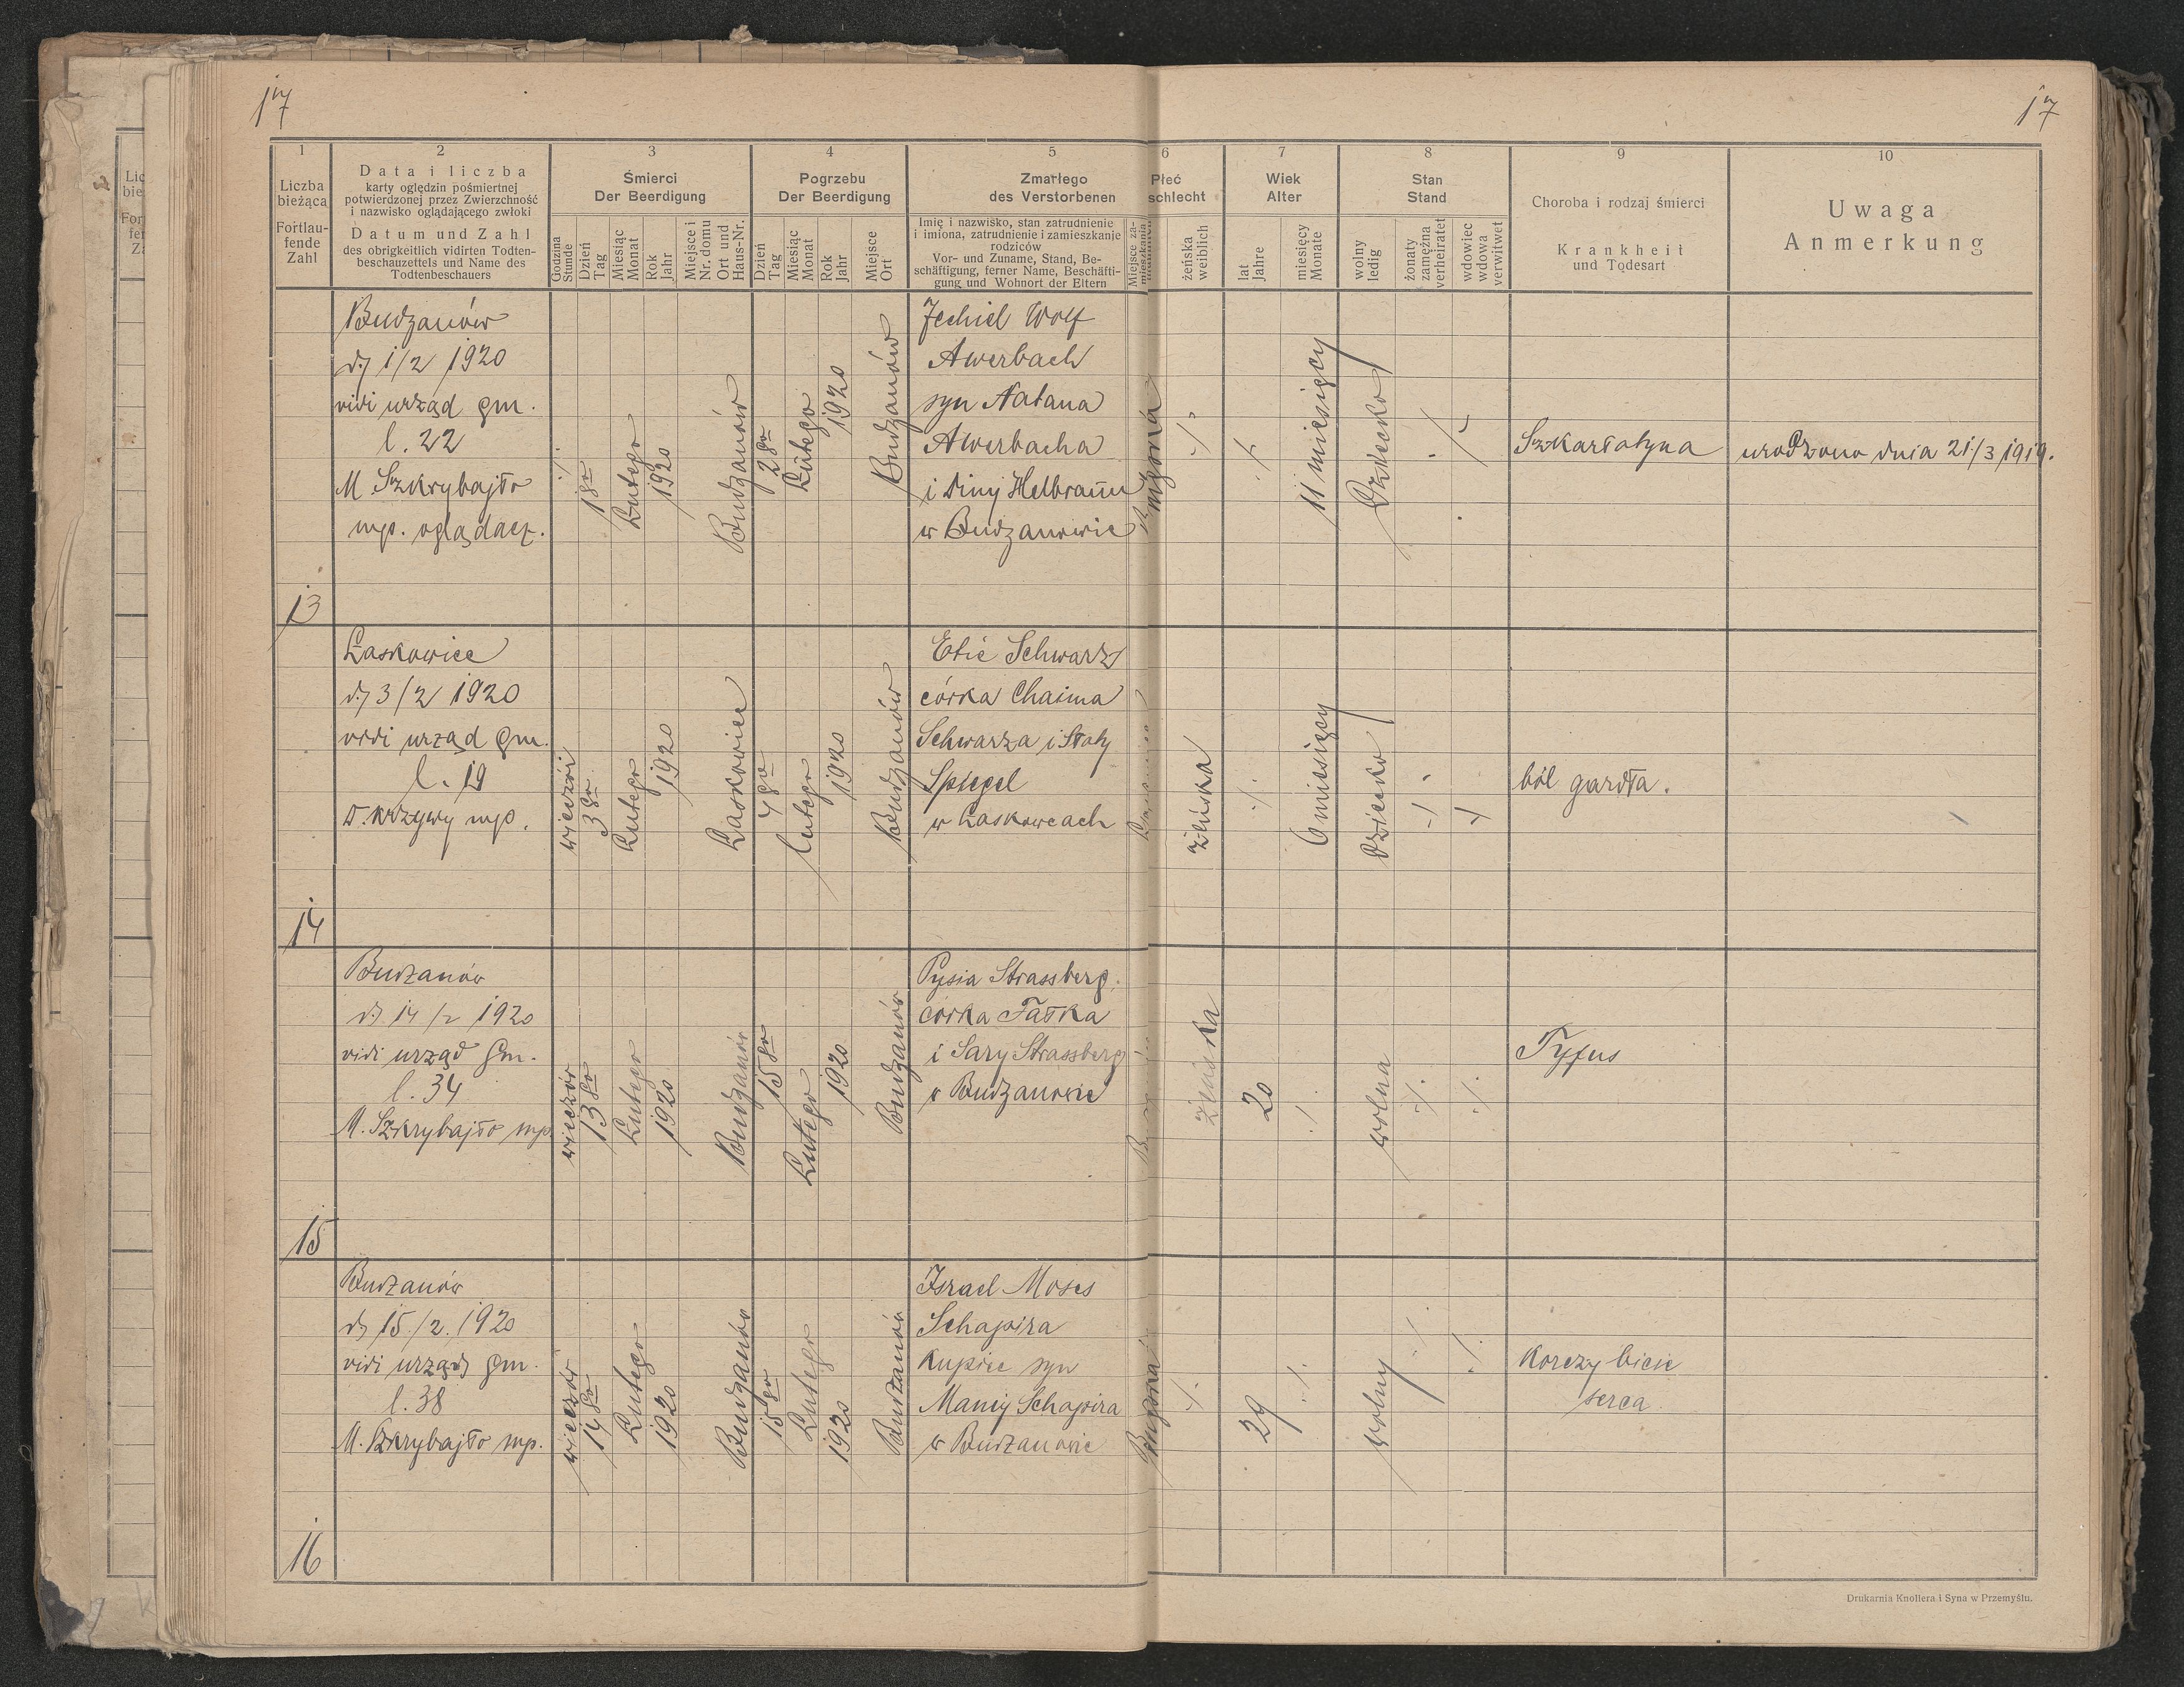 17
17
1
2
3
4
5
6
7
8
9
10
Liczba
bieżąca
Fortlau-
fende
Zahl
Data i liczba
karty oględzin pośmiertnej
potwierdzonej przez Zwierzchność
i nazwisko oglądającego zwłoki
Datum und Zahl
des obrigkeitlich vidirten Todten-
beschauzettels und Name des
Todtenbeschauers
Śmierci
Der Beerdigung
Godzina
Stunde
Dzień
Tag
Miesiąc
Monat
Rok
Jahr
Miejsce i
Nr. domu
Ort und
Haus-Nr.
Pogrzebu
Der Beerdigung
Dzień
Tag
Miesiąc
Monat
Rok
Jahr
Miejsce
Ort
Zmarłego
des Verstorbenen
Imię i nazwisko, stan zatrudnienie
i imiona, zatrudnienie i zamieszkanie
rodziców
Vor- und Zuname, Stand, Be-
schäftigung, ferner Name, Beschäfti-
gung und Wohnort der Eltern
Miejsce za-
mieszkania
Płeć
schlecht
żeńska
weiblich
Wiek
Alter
lat
Jahre
miesięcy
Monate
Stan
Stand
wolny
ledig
żonaty
zamężna
verheiratet
wdowiec
wdowa
verwitwet
Choroba i rodzaj śmierci
Krankheit
und Todesart
Uwaga
Anmerkung
13
Budzanów
d) 1/2 1920
vidi urząd gm.
l. 22
M Szkrybajło
mp. oglądacz.
1go
Lutego
1920
Budzanów
2go
Lutego
1920
Budzanów
Jechiel Wolf
Awerbach
syn Natana
Awerbacha
i Diny Helbraun
w Budzanowie
męzka
11 miesięcy
Dziecko
Szkarlatyna
urodzono dnia 21/3 1919.
14
Laskowice
d) 3/2 1920
vidi urząd gm.
l. 19
Krzywy mp.
wieczór
3go
Lutego
1920
Laskowice
4go
lutego
1920
Budzanów
Etie Schwarz
córka Chaima
Schwarza i
Spiegel
w Laskowcach
żeńska
6 miesięcy
Dziecko
ból gardła.
15
Budzanów
d) 14/2 1920
vidi urząd gm.
l. 34
M. Szkrybajło mp.
wieczór
13go
Lutego
1920
Budzanów
15go
Lutego
1920
Budzanów
Pysia Strassberg
córka Fałka
i Sary Strassberg
w Budzanowie
żeńska
20
wolna
Tyfus
16
Budzanów
d) 15/2. 1920
vidi urząd gm.
l. 38
M. Szkrybajło mp.
wieczór
14go
Lutego
1920
Budzanów
15go
Lutego
1920
Budzanów
Israel Moses
Schapira
kupiec syn
Maniy Schapira
w Budzanowie
męzka
29
wolny
korczy bicie
serca
Drukarnia Knollera i Syna w Przemyślu.